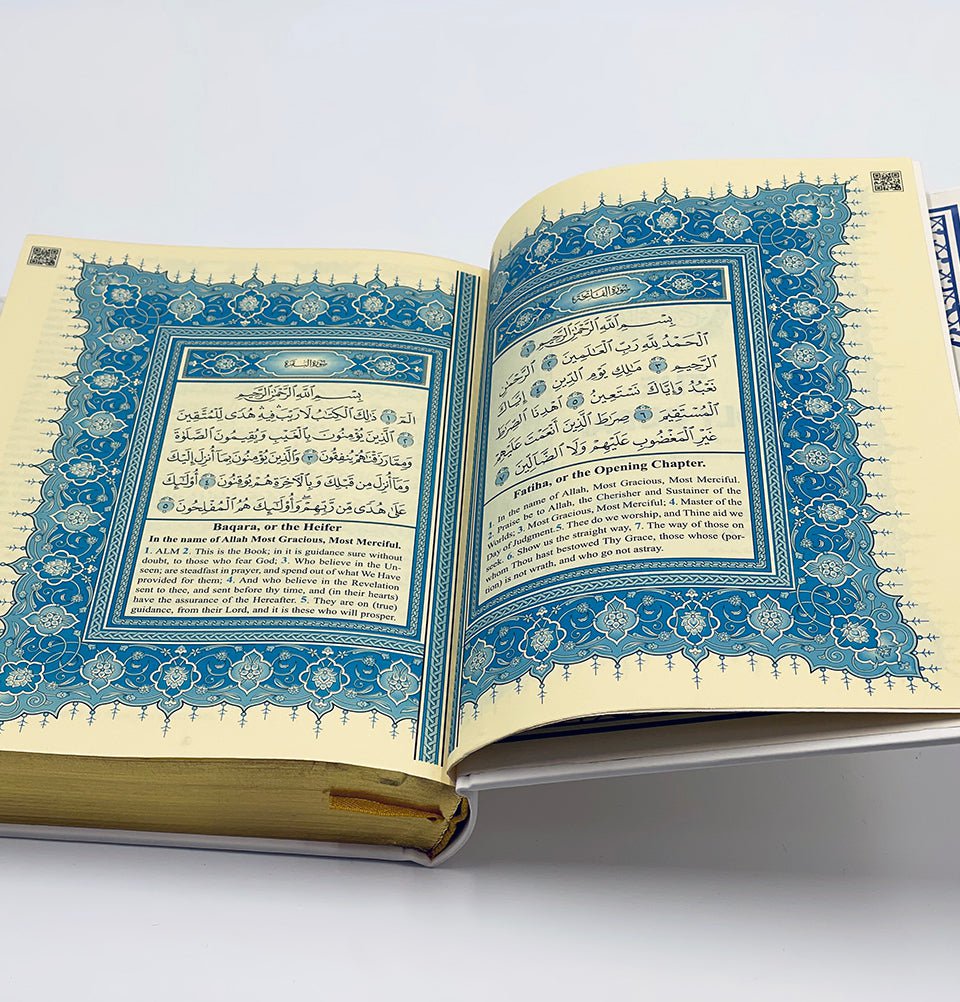 سُورَةُ الْفَاتِحَةِ
بِسْمِ اللَّهِ الرَّحْمَٰنِ الرَّحِيمِ ١
الْحَمْدُ لِلَّهِ رَبِّ الْعَالَمِينَ ٢ الرَّحْمَٰنِ
الرَّحِيمِ ٣ مَالِكِ يَوْمِ الدِّينِ ٤ إِيَّاكَ
نَعْبُدُ وَإِيَّاكَ نَسْتَعِينُ ٥ اهْدِنَا الصِّرَاطَ
الْمُسْتَقِيمَ ٦ صِرَاطَ الَّذِينَ أَنْعَمْتَ عَلَيْهِمْ
غَيْرِ الْمَغْضُوبِ عَلَيْهِمْ وَلَا الضَّالِّينَ ٧
Fatiha, or the Opening Chapter.
1. In the name of Allah, Most Gracious, Most Merciful.
2. Praise be to Allah, the Cherisher and Sustainer of the
Worlds; 3. Most Gracious, Most Merciful; 4. Master of the
Day of Judgment.5. Thee do we worship, and Thine aid we
seek. 6. Show us the straight way, 7. The way of those on
whom Thou hast bestowed Thy Grace, those whose (por-
tion) is not wrath, and who go not astray.
سُورَةُ الْبَقَرَةِ
بِسْمِ اللَّهِ الرَّحْمَٰنِ الرَّحِيمِ
الٓمٓ ١ ذَٰلِكَ الْكِتَابُ لَا رَيْبَ فِيهِ هُدًى لِلْمُتَّقِينَ
٢ الَّذِينَ يُؤْمِنُونَ بِالْغَيْبِ وَيُقِيمُونَ الصَّلَوٰةَ
وَمِمَّا رَزَقْنَاهُمْ يُنْفِقُونَ ٣ وَالَّذِينَ يُؤْمِنُونَ بِمَا أُنْزِلَ إِلَيْكَ
وَمَا أُنْزِلَ مِنْ قَبْلِكَ وَبِالْآخِرَةِ هُمْ يُوقِنُونَ ٤ أُولَٰئِكَ
عَلَىٰ هُدًى مِنْ رَبِّهِمْ وَأُولَٰئِكَ هُمُ الْمُفْلِحُونَ ٥
Baqara, or the Heifer
In the name of Allah Most Gracious, Most Merciful.
1. ALM 2. This is the Book; in it is guidance sure without
doubt, to those who fear God; 3. Who believe in the Un-
seen; are steadfast in prayer, and spend out of what We Have
provided for them; 4. And who believe in the Revelation
sent to thee, and sent before thy time, and (in their hearts)
have the assurance of the Hereafter. 5. They are on (true)
guidance, from their Lord, and it is these who will prosper.